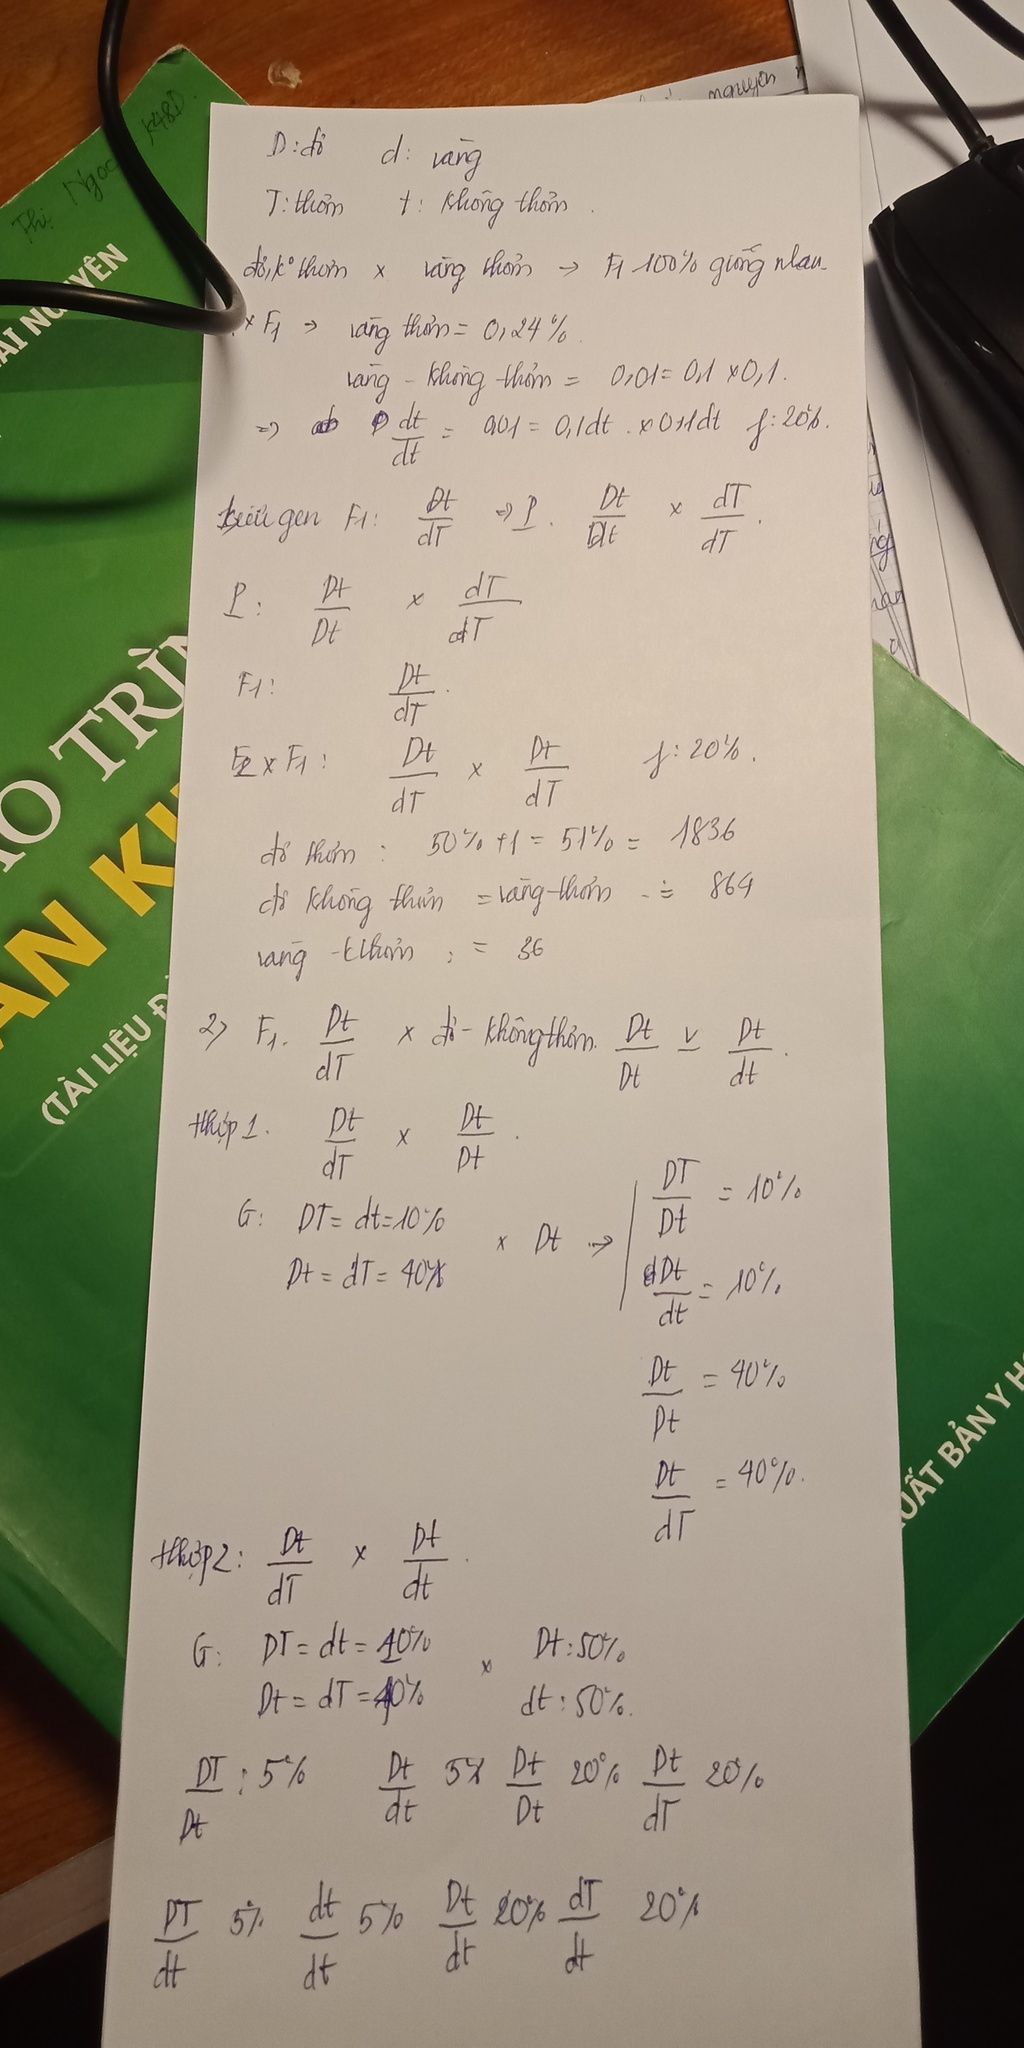 nguyên
Thị Ngọc K48D.
AI NGUYÊN
O TRÌN
AN KH
(TÀI LIỆU Đ
UẤT BẢN Y H
D: đỏ d: vàng
T: thơm t: không thơm.
đỏ, ko thơm x vàng thơm → F1 100% giống nhau.
x F1 → vàng thơm = 0,24%.
vàng - không thơm = 0,01 = 0,1 x 0,1.
=> dt/dt = 0,01 = 0,1dt . x 0,1dt f: 20%.
kiểu gen F1: Dt/dT => P. Dt/Dt x dT/dT.
P: Dt/Dt x dT/dT
F1: Dt/dT.
F1 x F1: Dt/dT x Dt/dT f: 20%.
đỏ thơm: 50% + 1 = 51% = 1836
đỏ không thơm = vàng-thơm = 864
vàng - k thơm: = 36
2) F1. Dt/dT x đỏ - không thơm. Dt/Dt v Dt/dt.
thợp 1. Dt/dT x Dt/Dt.
G: DT = dt = 10%
Dt = dT = 40%
x Dt →
DT/Dt = 10%
Dt/dt = 10%
Dt/Dt = 40%
Dt/dT = 40%.
thợp 2: Dt/dT x Dt/dt.
G: DT = dt = 10% x Dt: 50%
Dt = dT = 40% dt: 50%.
DT/Dt: 5% Dt/dt 5% Dt/Dt 20% Dt/dT 20%
DT/dt 5% dt/dt 5% Dt/dt 20% dT/dt 20%